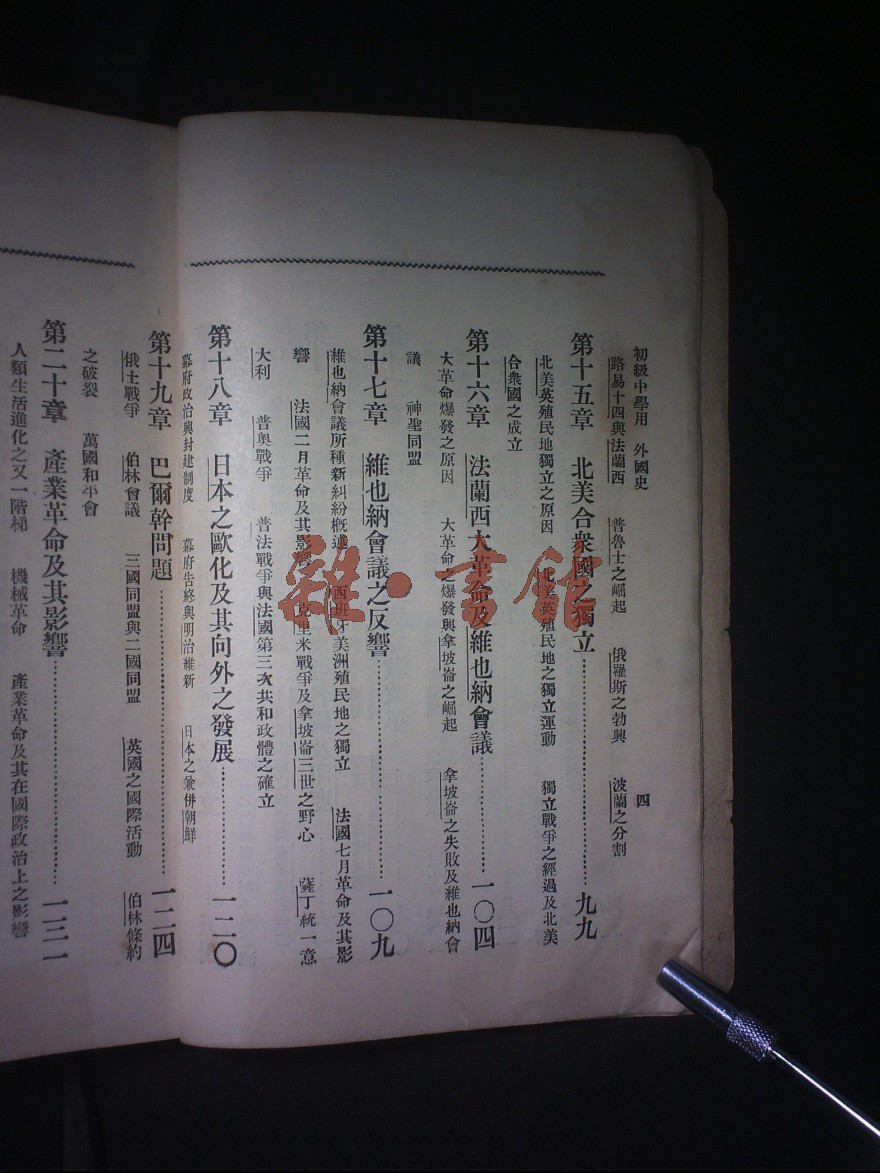 初級中學用　外國史　四
路易十四與法蘭西　普魯士之崛起　俄羅斯之勃興　波蘭之分割
第十五章　北美合衆國之獨立……………九九
北美英殖民地獨立之原因　北美英殖民地之獨立運動　獨立戰爭之經過及北美
合衆國之成立
第十六章　法蘭西大革命及維也納會議………一〇四
大革命爆發之原因　大革命之爆發與拿坡崙之崛起　拿坡崙之失敗及維也納會
議　神聖同盟
第十七章　維也納會議之反響……………一〇九
維也納會議所種新糾紛概述　西班牙美洲殖民地之獨立　法國七月革命及其影
響　法國二月革命及其影響　克里米戰爭及拿坡崙三世之野心　薩丁統一意
大利　普奧戰爭　普法戰爭與法國第三次共和政體之確立
第十八章　日本之歐化及其向外之發展………一二〇
幕府政治與封建制度　幕府告終與明治維新　日本之兼併朝鮮
第十九章　巴爾幹問題……………一二四
俄土戰爭　伯林會議　三國同盟與二國同盟　英國之國際活動　伯林條約
之破裂　萬國和平會
第二十章　產業革命及其影響……………一三一
人類生活進化之又一階梯　機械革命　產業革命及其在國際政治上之影響
雜·書館